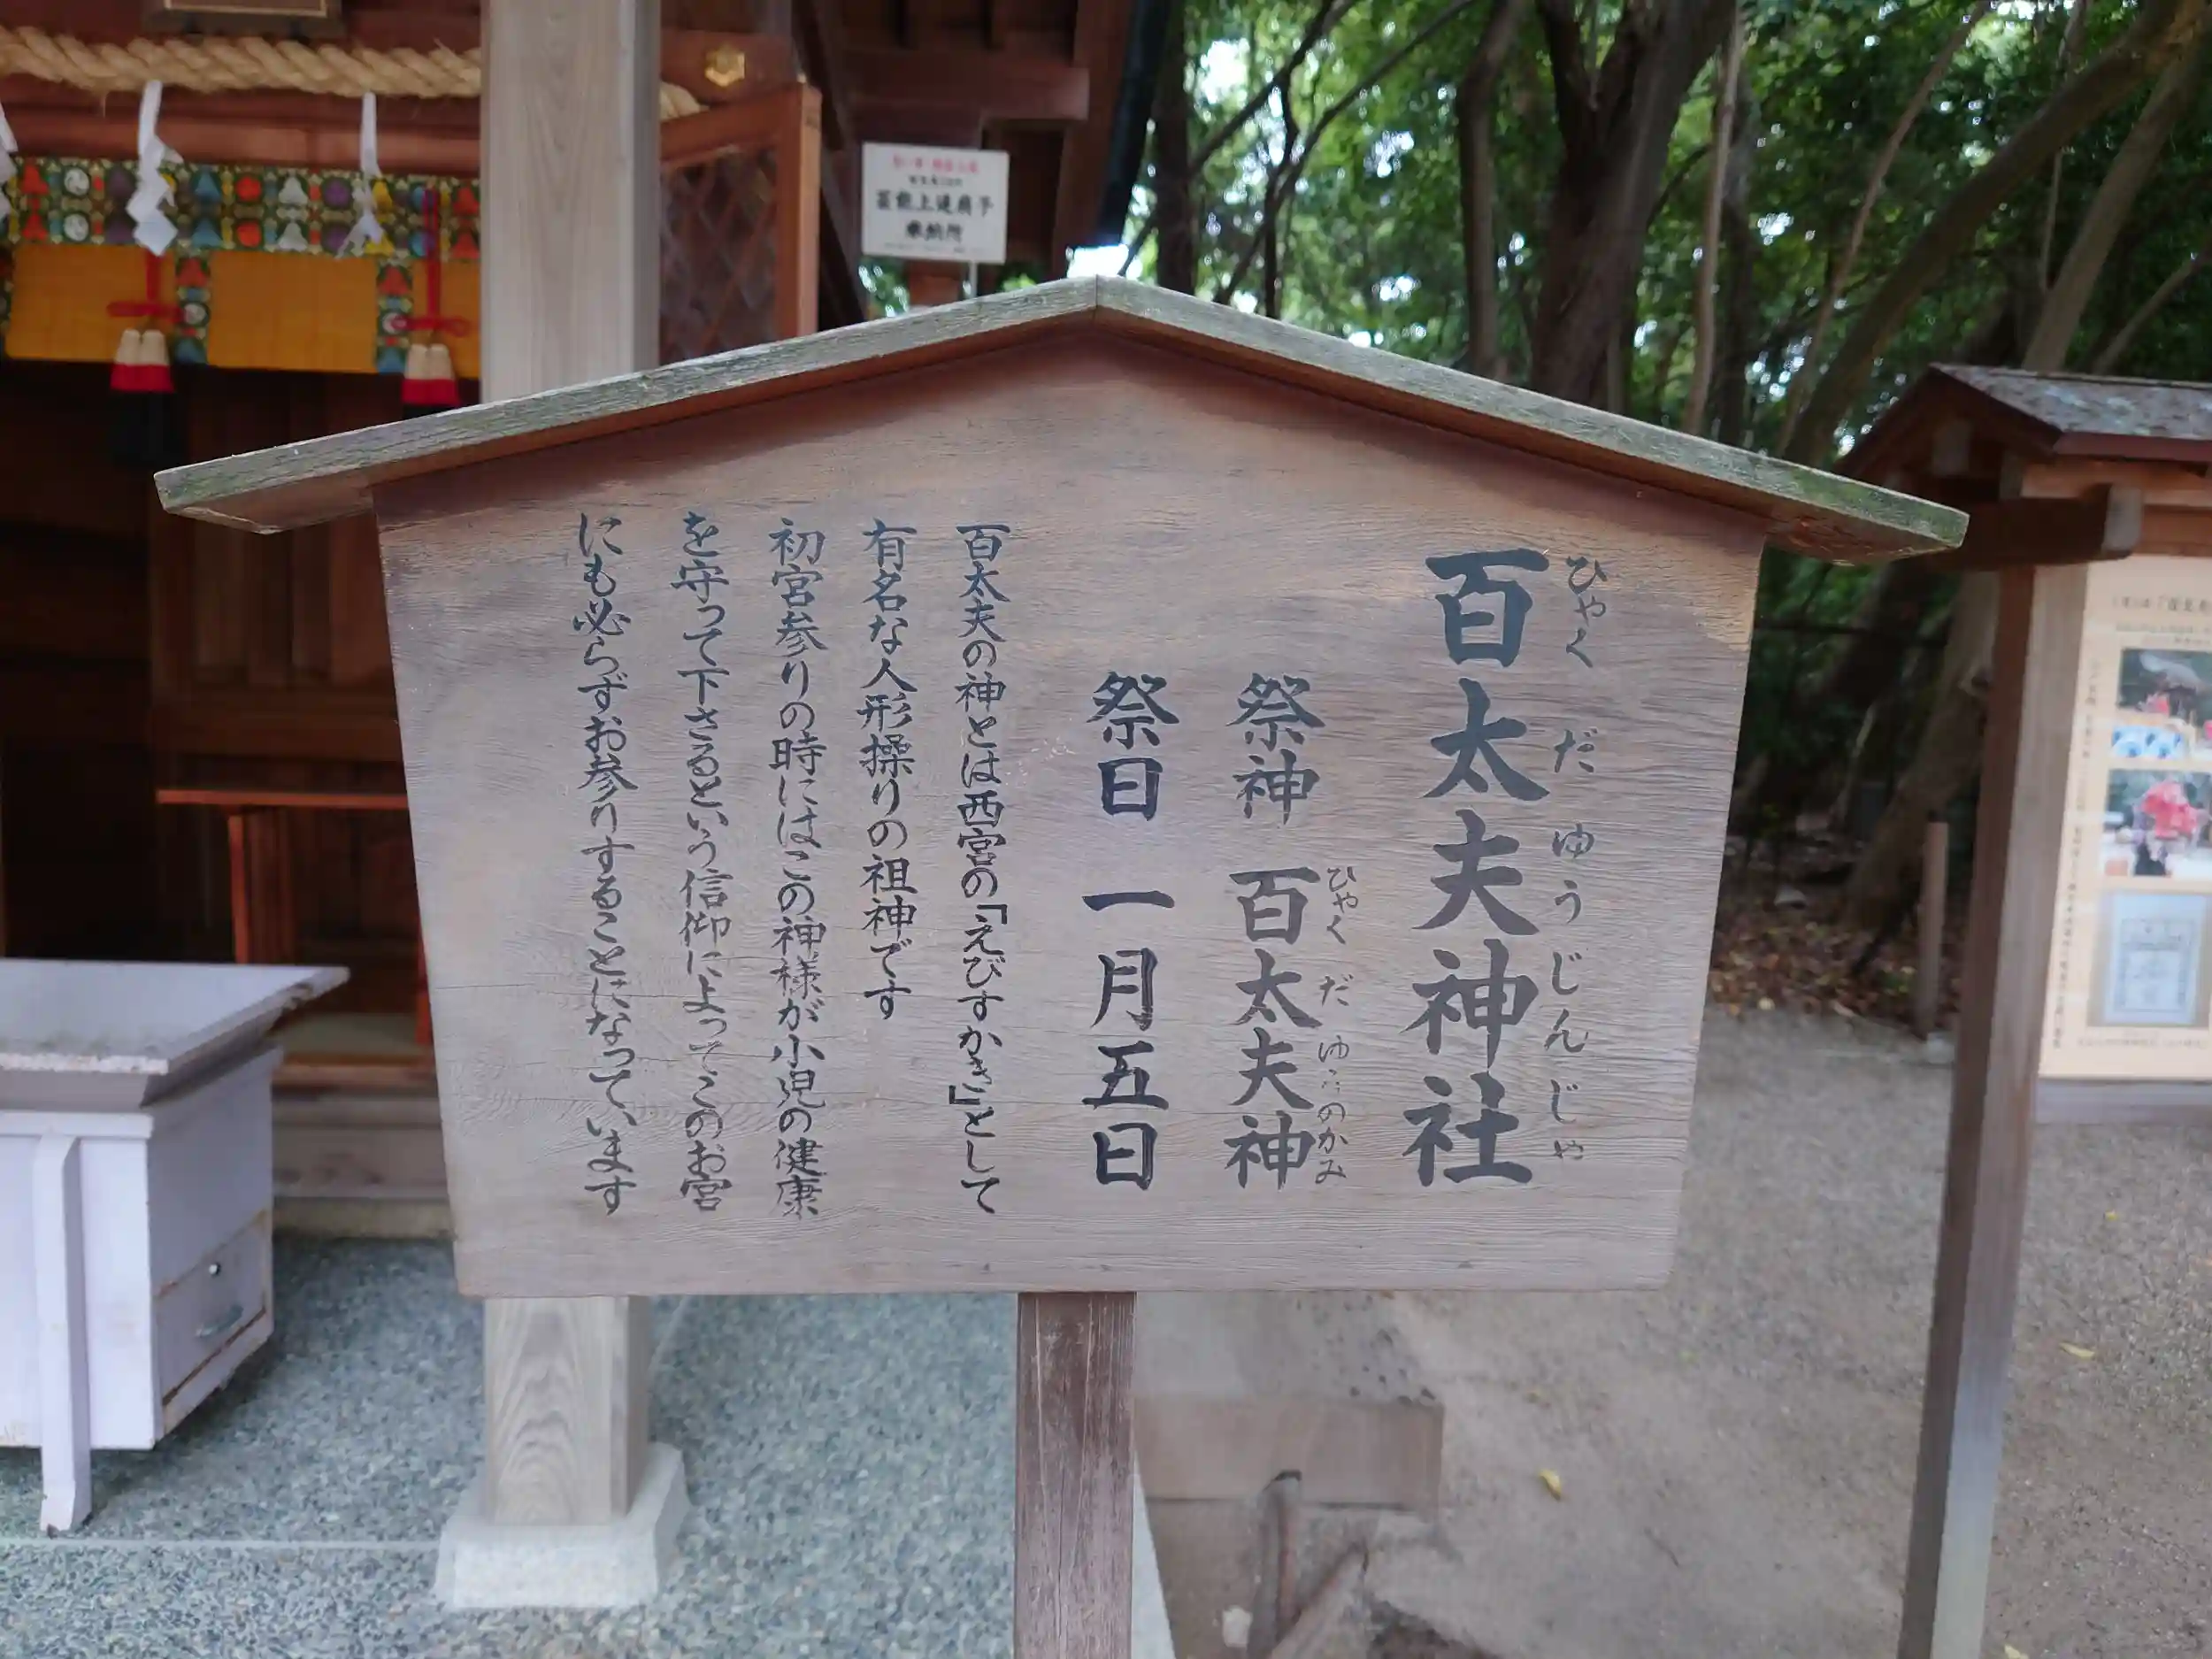 百太夫神社
ひゃくだゆうじんじゃ
祭神 百太夫神
ひゃくだゆうのかみ
祭日 一月五日
百太夫の神とは西宮の「えびすかき」として
有名な人形操りの祖神です
初宮参りの時にはこの神様が小児の健康
を守って下さるという信仰によってこのお宮
にも必らずお参りすることになっています
芸能上達扇子
奉納所